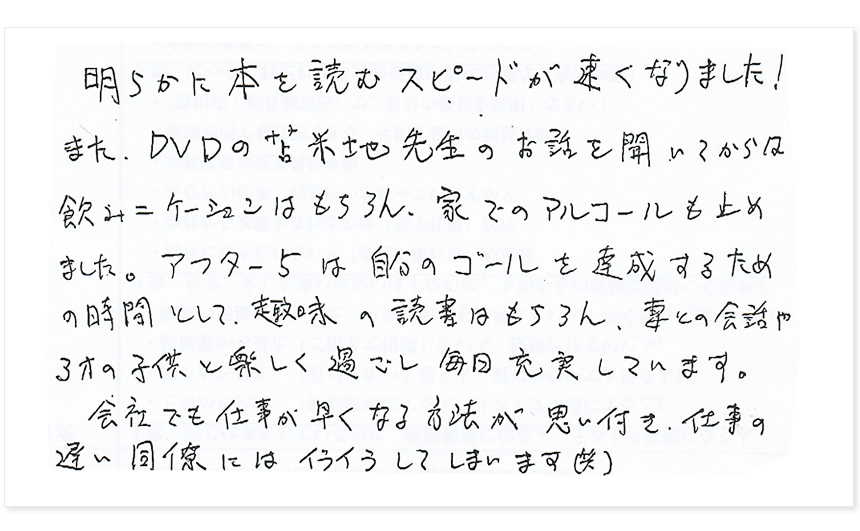 明らかに本を読むスピードが速くなりました!
また、DVDの苫米地先生のお話を聞いてからは
飲みニケーションはもちろん、家でのアルコールも止め
ました。アフター5は自分のゴールを達成するため
の時間として、趣味の読書はもちろん、妻との会話や
3才の子供と楽しく過ごし毎日充実しています。
会社でも仕事が早くなる方法が思い付き、仕事の
遅い同僚にはイライラしてしまいます(笑)